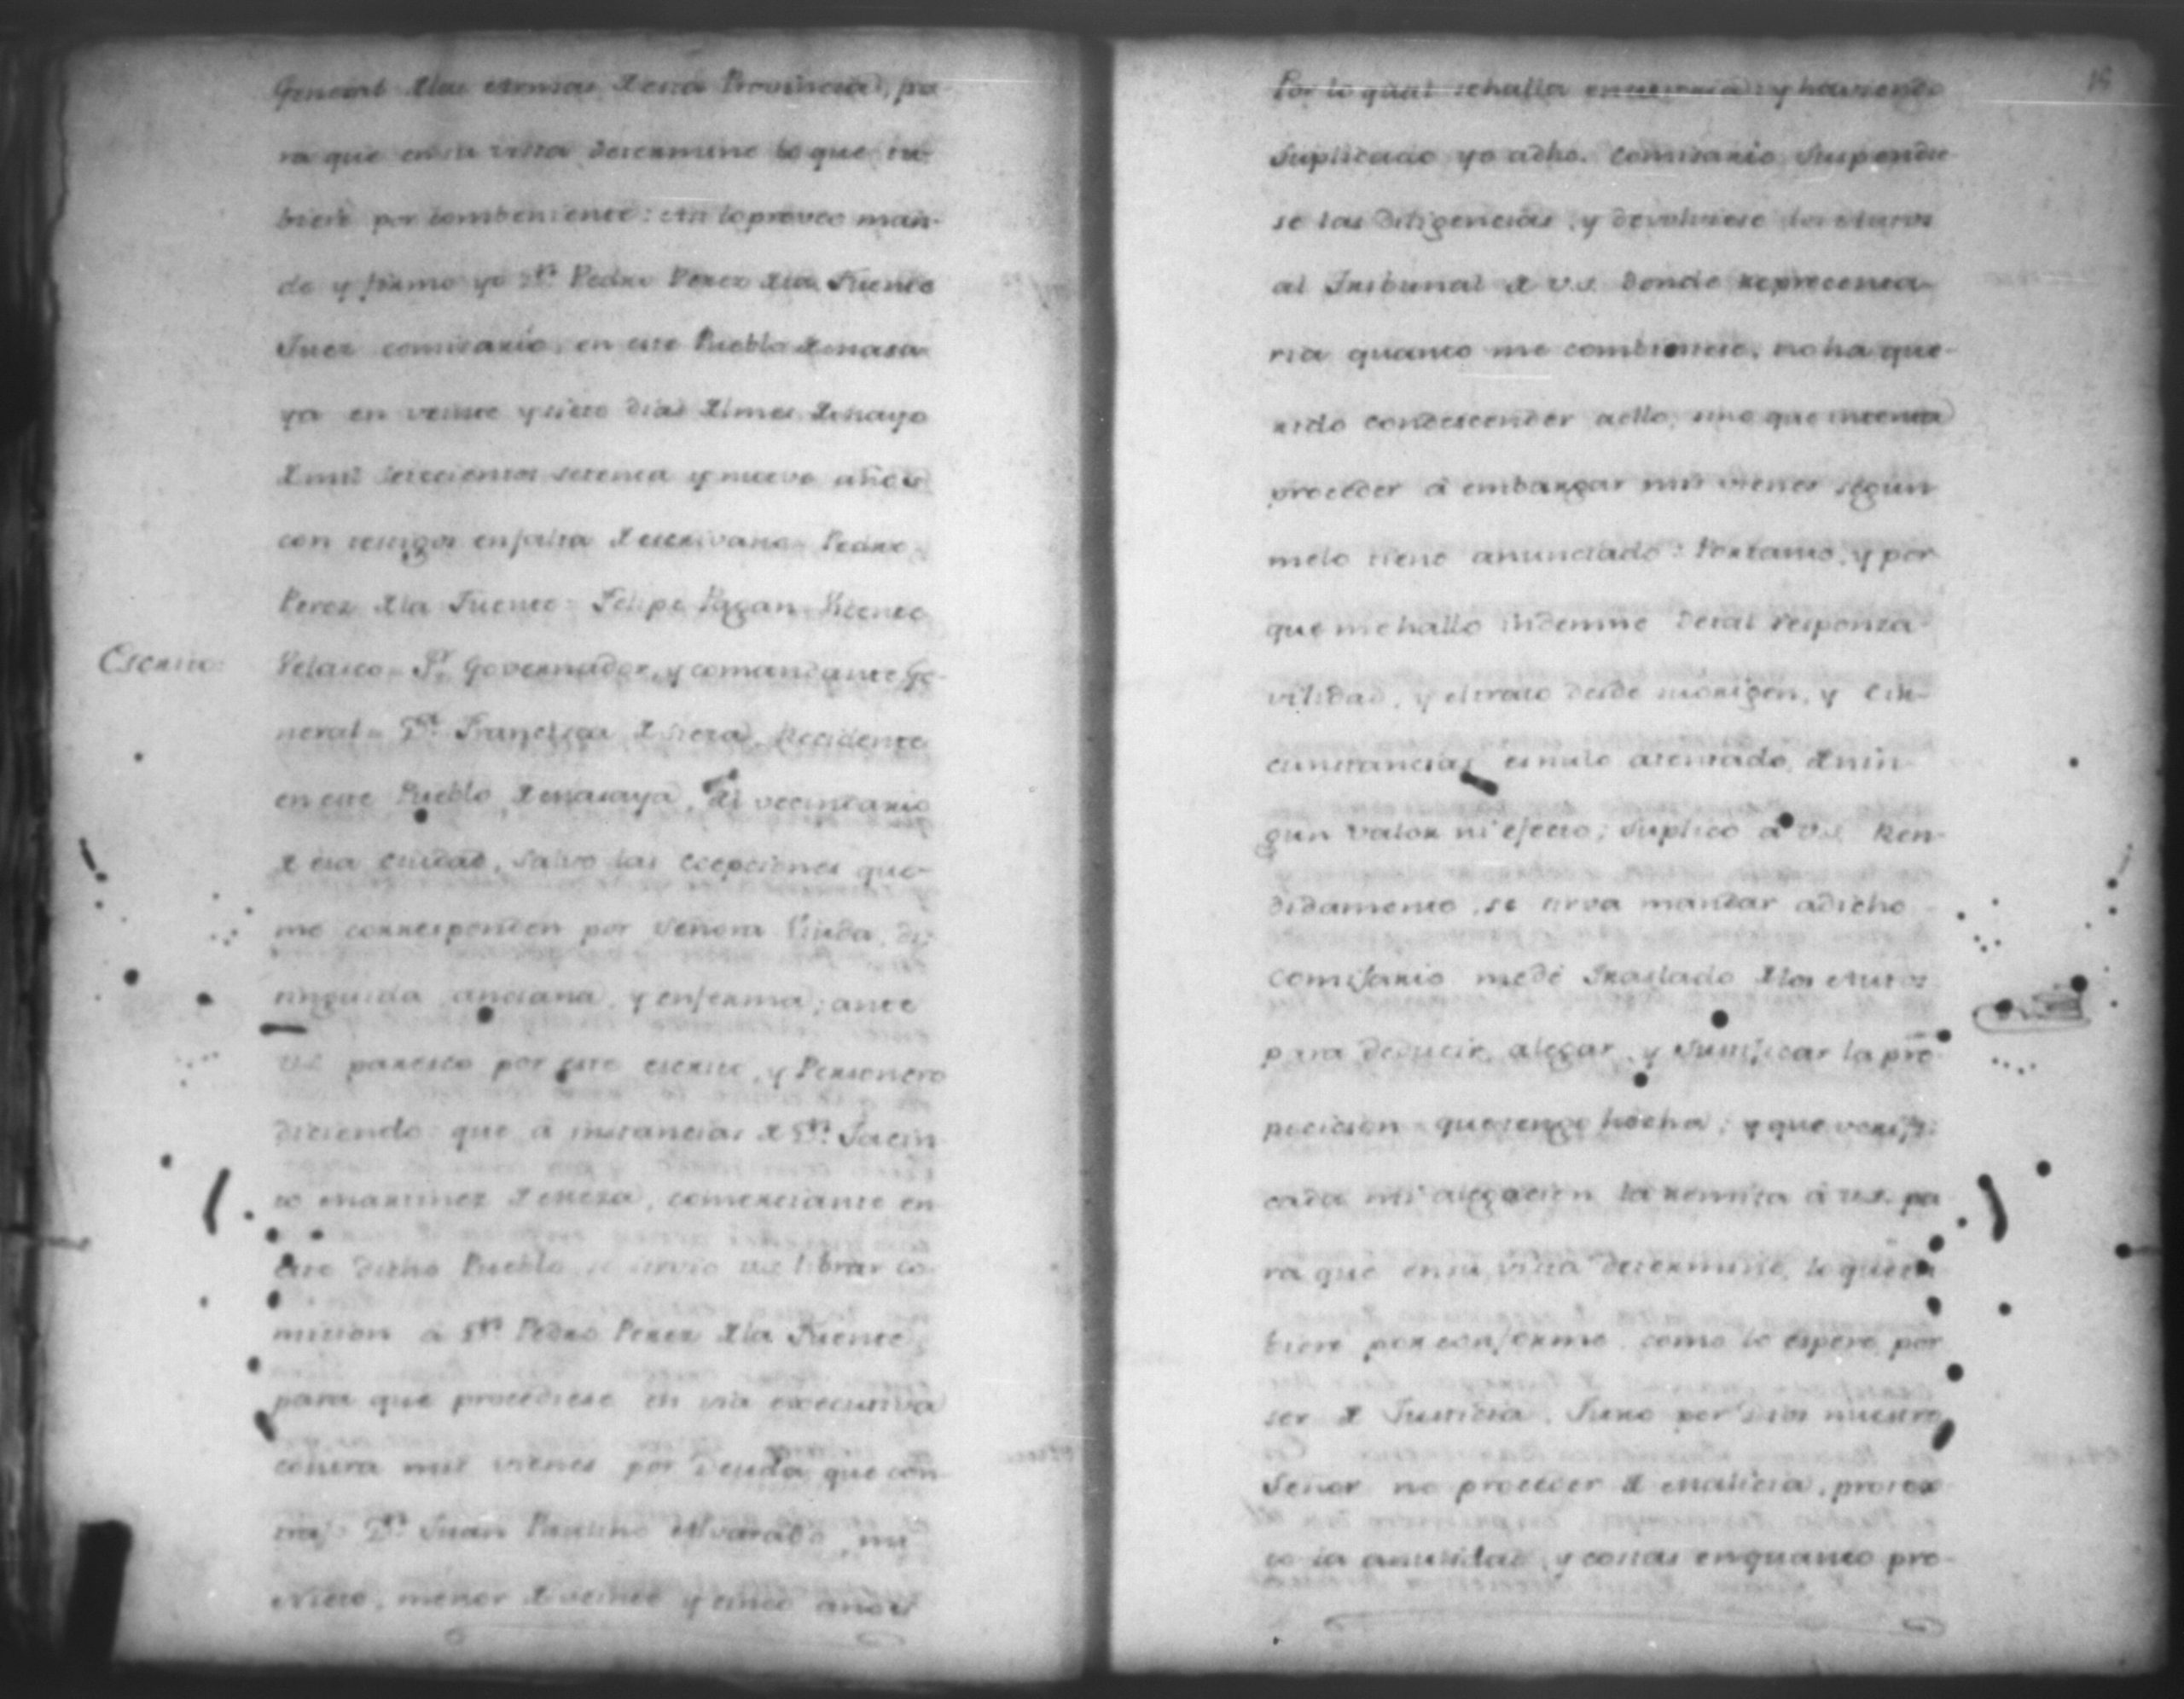 General de las Armas de esta Provincia, pa-
ra que en su vista determine lo que tu-
biere por combeniente: Asi lo proveo man-
do y firmo yo Dn. Pedro Perez de la Fuente
Juez comisario, en este Pueblo de Masa-
ya en veinte y siete dias del mes de Mayo
de mil setecientos setenta y nueve años
con testigos en falta de escrivano = Pedro
Perez de la Fuente = Felipe Pagan = Vicente
Escrito:
Velasco = Sr. Governador, y comandante Ge-
neral = Da. Francisca de Recidente
en este Pueblo de Masaya, del vecindario
de esa ciudad, salvo las ecepciones que
me corresponden por Señora Viuda, dis-
tinguida anciana, y enferma; ante
V.S. paresco por este escrito, y Personero
diciendo: que á instancias de Dn. Jacin-
to Martinez de comerciante en
este dicho Pueblo se sirvio V.S. librar co-
mision á Dn. Pedro Perez de la Fuente,
para que procediese en via executiva
contra mis vienes por Deuda que con-
trajo Dn. Juan Paulino Alvarado, mi
Nieto, menor de veinte y cinco años
18
Por lo qual se halla y haviendo
Suplicado yo a dho. Comisario Suspendie-
se las Diligencias, y devolviese los Autos
al Tribunal de V.S. Donde reprecenta-
ria quanto me combiniese, no ha que-
rido condescender a ello, sino que intenta
proceder á embargar mis vienes segun
me lo tiene anunciado: Portanto, y por
que me hallo indemne de tal responza-
vilidad, y el trato desde su origen, y Cir-
cunstancias es nulo atentado, de nin-
gun valor ni efecto; Suplico á V.S. Ren-
didamente, se sirva mandar a dicho
Comisario me dé Traslado de los Autos
para deducir, alegar, y Justificar la pro-
pocicion que tengo hecha; y que verifi-
cada mi alegacion la remita á V.S. pa-
ra que en su vista determine, lo que tu-
biere por conforme como lo espero por
ser de Justicia, Juro por Dios nuestro
Señor no proceder de Malicia, protex-
to la anulidad, y costas en quanto pro-